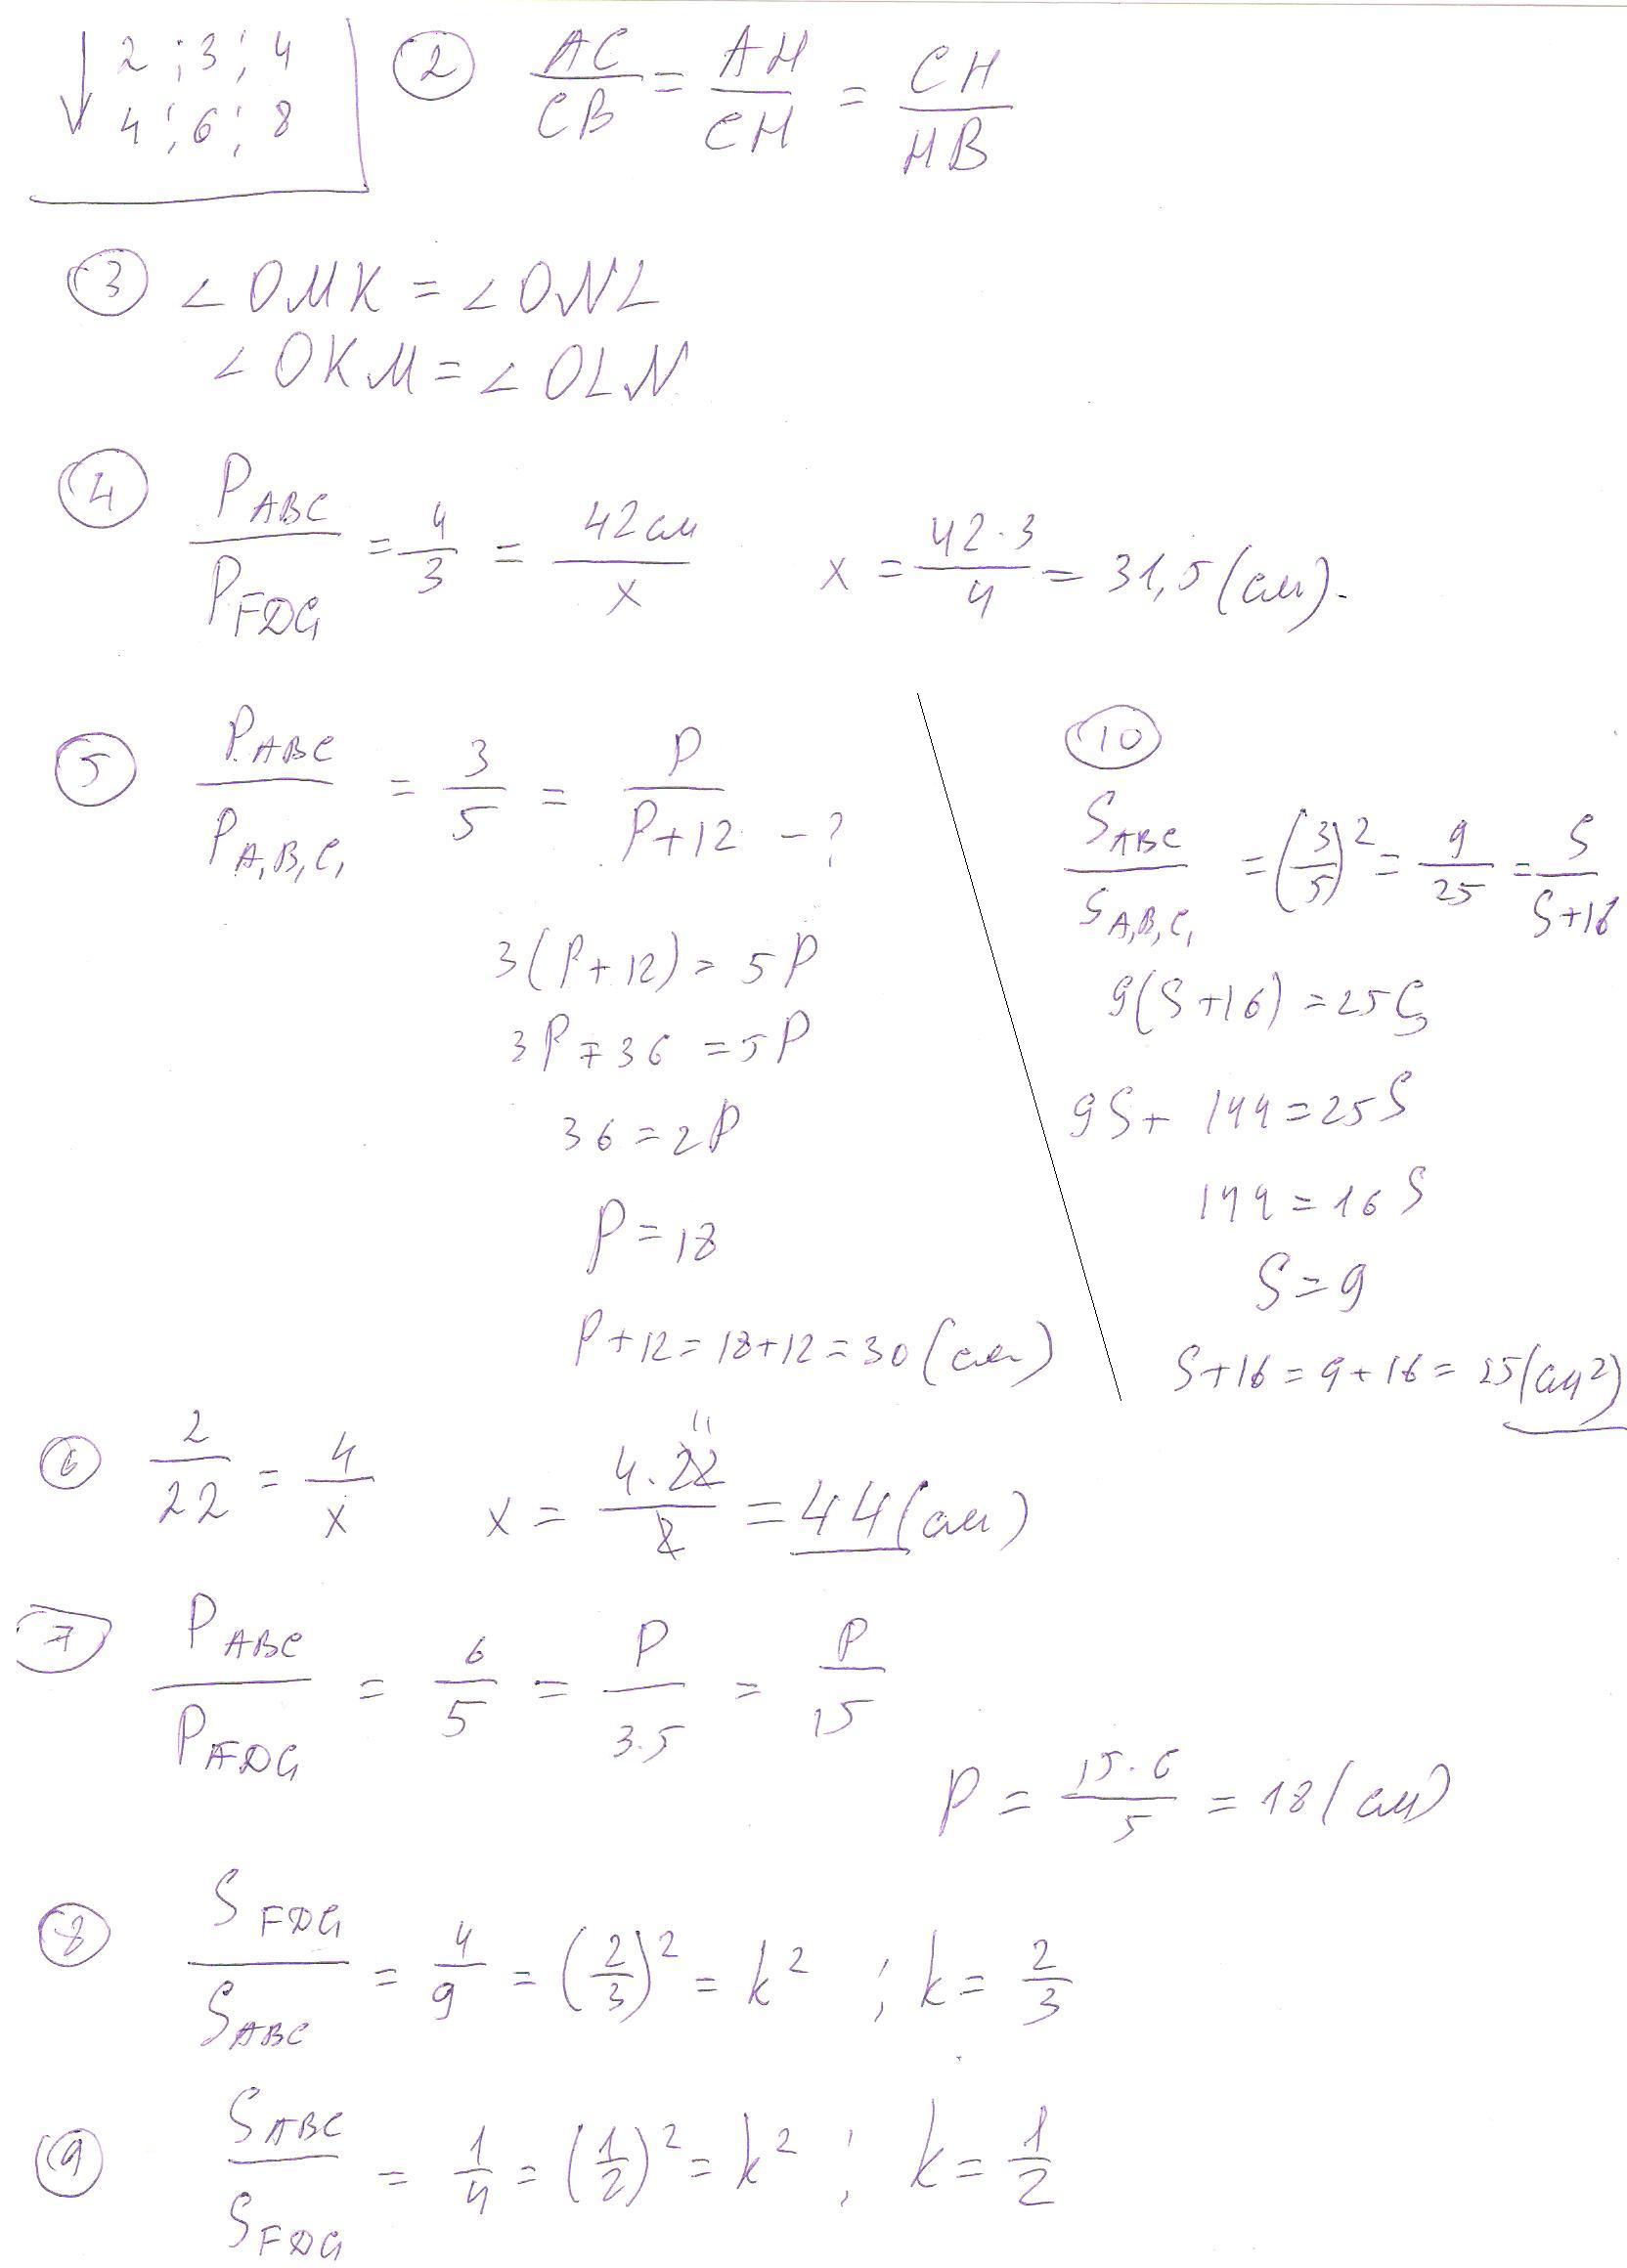 ↓ 2 ; 3 ; 4
4 ; 6 ; 8
② AC/CB = AH/CH = CH/HB
③ ∠OMK = ∠ONL
∠OKM = ∠OLN
④ P_ABC/P_FDG = 4/3 = 42см/x x = 42·3/4 = 31,5 (см).
⑤ P_ABC/P_A₁B₁C₁ = 3/5 = P/(P+12) - ?
3(P+12) = 5P
3P+36 = 5P
36 = 2P
P = 18
P+12 = 18+12 = 30 (см)
⑩
S_ABC/S_A₁B₁C₁ = (3/5)² = 9/25 = S/(S+16)
9(S+16) = 25S
9S + 144 = 25S
144 = 16S
S = 9
S+16 = 9+16 = 25 (см²)
⑥ 2/22 = 4/x x = 4·22/2 = 44 (см)
11
⑦ P_ABC/P_FDG = 6/5 = P/3·5 = P/15
P = 15·6/5 = 18 (см)
⑧ S_FDG/S_ABC = 4/9 = (2/3)² = k² ; k = 2/3
⑨ S_ABC/S_FDG = 1/4 = (1/2)² = k² ; k = 1/2